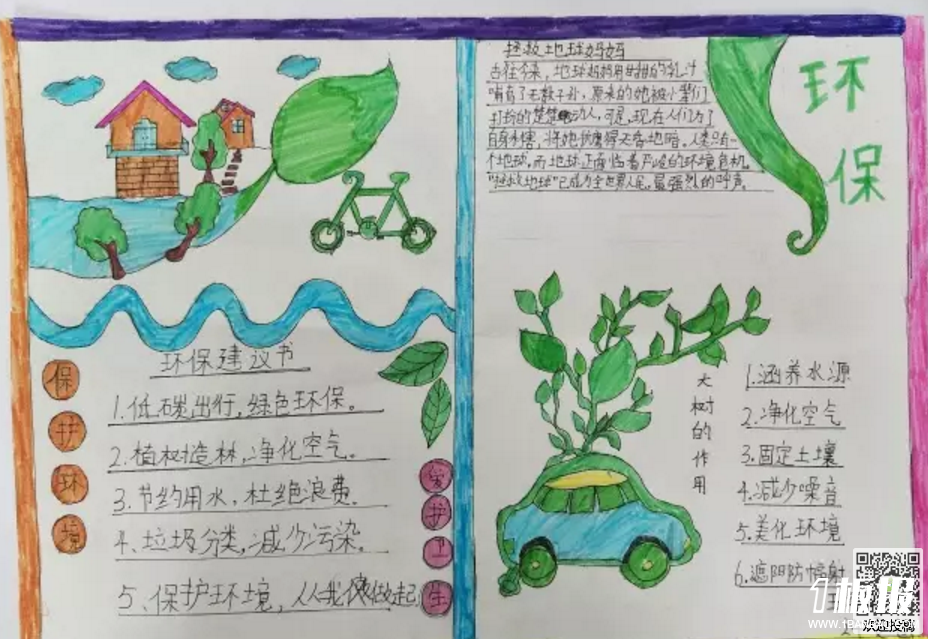 拯救地球妈妈
古往今来，地球妈妈用甘甜的乳汁
哺育了无数子孙，原来的她被小辈们
打扮的楚楚动人，可是，现在人们为了
自身利害，将她
个地球，而地球正面临着严峻的环境危机。
"拯救地球"已成为全世界人民最强烈的呼声。
环保
环保建议书
1.低碳出行，绿色环保。
2.植树造林，净化空气。
3.节约用水，杜绝浪费。
4、垃圾分类，减少污染。
5、保护环境，从我做起
保护环境
爱护卫生
大树的作用
1.涵养水源
2.净化空气
3.固定土壤
4.减少噪音
5.美化环境
6.遮阴防辐射
1板报
www.1banbao.com
欢迎投稿